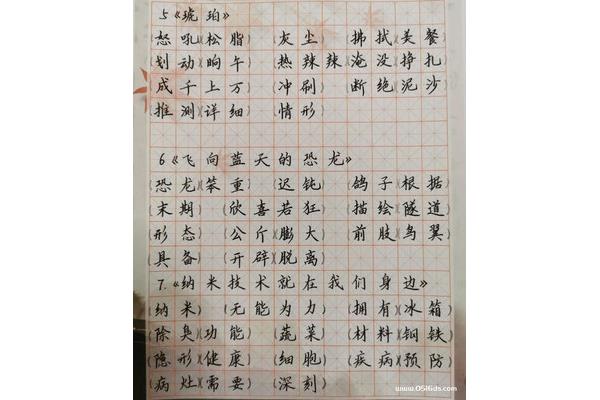 5《琥珀》
(怒吼)(松脂) (灰尘) (拂拭)(美餐)
(划动)(晌午) (热辣辣)(淹没)(挣扎)
(成千上万) (冲刷) (断绝)(泥沙)
(推测)(详细) (情形)
6《飞向蓝天的恐龙》
(恐龙)(笨重) (迟钝) (鸽子)(根据)
(末期) (欣喜若狂) (描绘)(隧道)
(形态) (公斤)(膨大) (前肢)(鸟翼)
(具备) (开辟)(脱离)
7.《纳米技术就在我们身边》
(纳米) (无能为力) (拥有)(冰箱)
(除臭)(功能) (蔬菜) (材料)(钢铁)
(隐形)(健康) (细胞) (疾病)(预防)
(病灶)(需要) (深刻)
www.0516ds.com